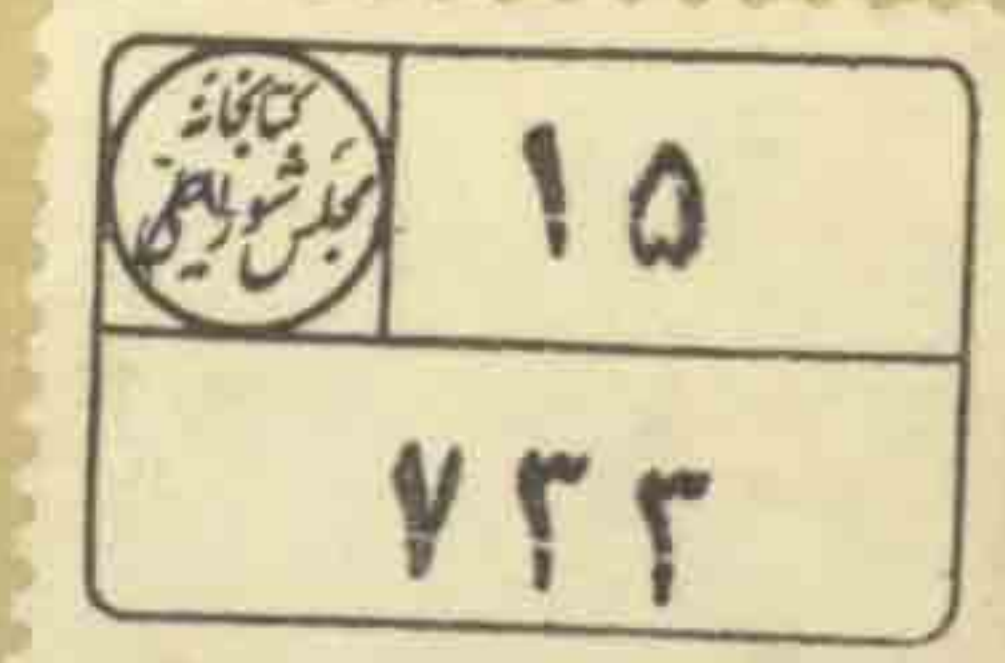 کتابخانه
مجلس شورای ملی
۱۵
۷۳۳